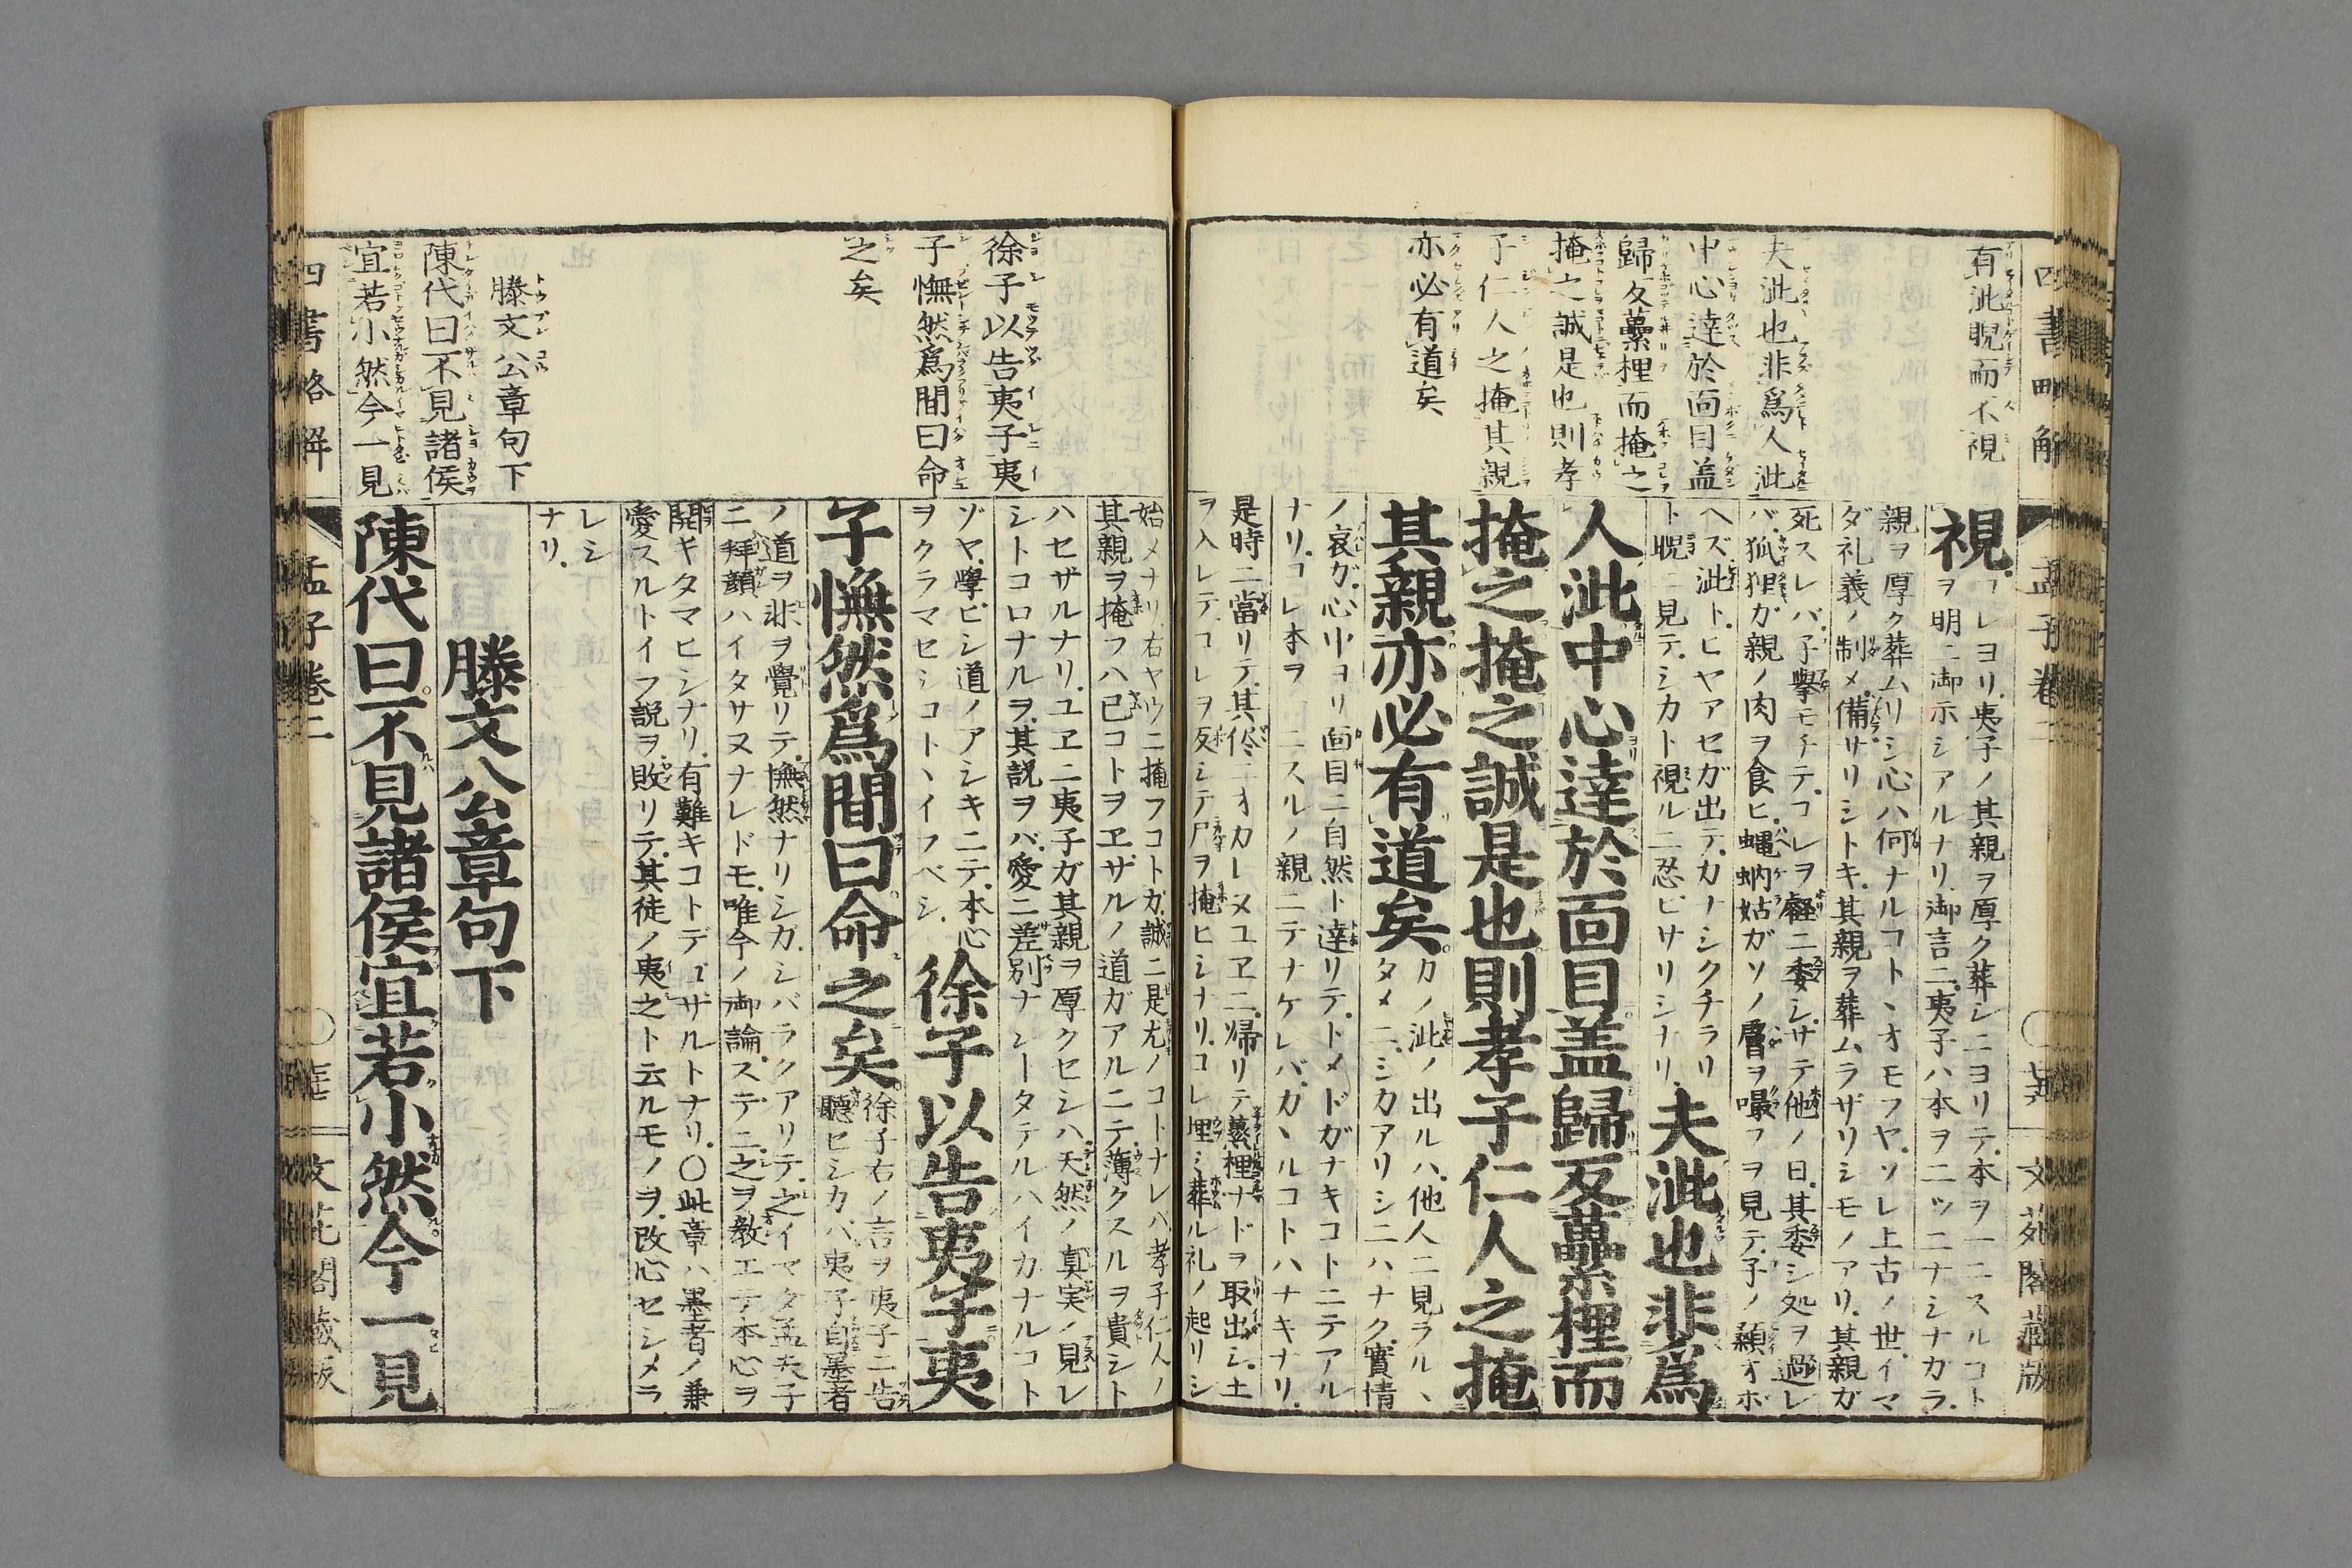 四書略解
孟子巻二
文苑閣蔵版
有泚睨而不視
夫泚也非爲人泚
中心達於面目盖
歸反虆梩而掩之
掩之誠是也則孝
子仁人之掩其親
亦必有道矣
視
コレヨリ夷子ノ其親ヲ厚ク葬シニヨリテ本ヲ一ニスルコト
ヲ明ニ御示シアルナリ御言ニ夷子ハ本ヲ二ツニナシナカラ
親ヲ厚ク葬ムリシ心ハ何ナルコトヽオモフヤソレ上古ノ世イマ
ダ礼義ノ制メ備サリシトキ其親ヲ葬ムラザリシモノアリ其親ガ
死スレバ子擧モチテコレヲ壑ニ委シサテ他ノ日其委シ処ヲ過レ
バ狐狸ガ親ノ肉ヲ食ヒ蝿蚋姑ガソノ屑ヲ嘬フヲ見テ子ノ顙オボ
ヘズ泚トヒヤアセガ出テカノシクチラリ
ト睨ニ見テシカト視ルニ忍ビサリシナリ
夫泚也非爲
人泚中心達於面目盖歸反虆梩而
掩之掩之誠是也則孝子仁人之掩
其親亦必有道矣
カノ泚ノ出ルハ他人ニ見ラルヽ
タメニシカアリシニハナク實情
ノ哀ガ心中ヨリ面目ニ自然ト達リテトメドガナキコトニテアル
ナリコレ本ヲ二ニスルノ親ニテナケレバカヽルコトハナキナリ
是時ニ當リテ其侭ニオカレヌユヱニ帰リテ虆梩ナドヲ取出シ土
ヲ入レテコレヲ反シテ尸ヲ掩ヒシナリコレ埋ミ葬ル礼ノ起リシ
徐子以告夷子夷
子憮然爲間曰命
之矣
滕文公章句下
陳代曰不見諸侯
宜若小然今一見
始メナリ右ヤウニ掩フコトガ誠ニ是尤ノコトナレバ孝子仁人ノ
其親ヲ掩フハ已コトヲヱザルノ道ガアルニテ薄クスルヲ貴シト
ハセザルナリユヱニ夷子ガ其親ヲ厚クセシハ天然ノ真実ノ見レ
シトコロナルヲ其説ヲバ愛ニ差別ナシータテルハイカナルコト
ゾヤ學ビシ道ノアシキニテ本心
ヲクラマセシコトヽイフベシ
徐子以告夷子夷
子憮然爲間曰命之矣
徐子右ノ言ヲ夷子ニ告
聽ヒシカバ夷子自墨者
ノ道ヲ非ヲ覺リテ憮然ナリシガシバラクアリテ之イマタ孟夫子
ニ拜顔ハイタサヌナレドモ唯今ノ御論ステニ之ヲ教エテ本心ヲ
開キタマヒシナリ有難キコトデゴザルトナリ○此章ハ墨者ノ兼
愛スルトイフ説ヲ敗リテ其徒ノ夷之ト云ルモノヲ改心セシメラ
レシ
ナリ
滕文公章句下
陳代曰不見諸侯宜若小然今一見
四書略解
孟子巻二
文苑閣蔵版